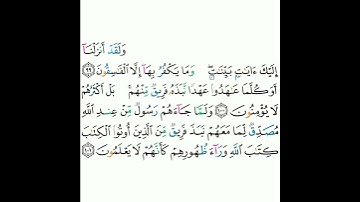 وَلَقَدْ أَنزَلْنَآ
إِلَيْكَ ءَايَٰتٍۭ بَيِّنَٰتٍۖ وَمَا يَكْفُرُ بِهَآ إِلَّا ٱلْفَٰسِقُونَ ٩٩
أَوَكُلَّمَا عَٰهَدُوا۟ عَهْدًا نَّبَذَهُۥ فَرِيقٌ مِّنْهُمۚ بَلْ أَكْثَرُهُمْ
لَا يُؤْمِنُونَ ١٠٠ وَلَمَّا جَآءَهُمْ رَسُولٌ مِّنْ عِندِ ٱللَّهِ
مُصَدِّقٌ لِّمَا مَعَهُمْ نَبَذَ فَرِيقٌ مِّنَ ٱلَّذِينَ أُوتُوا۟ ٱلْكِتَٰبَ
كِتَٰبَ ٱللَّهِ وَرَآءَ ظُهُورِهِمْ كَأَنَّهُمْ لَا يَعْلَمُونَ ١٠١